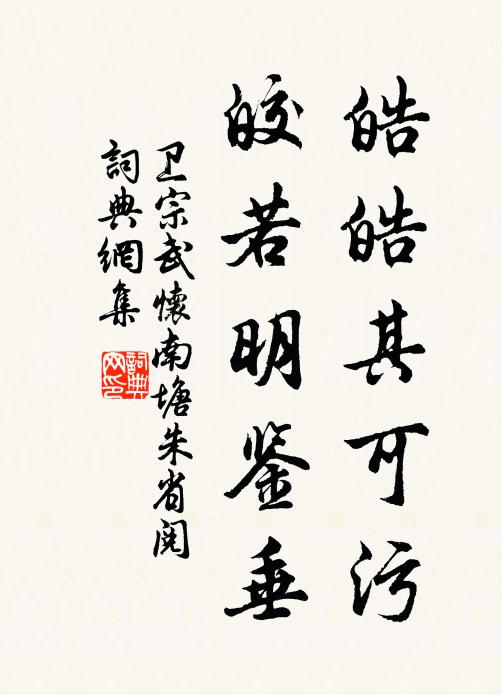 皓皓其可污
皎若明鉴垂
卫宗武懷南塘朱省閱
詞典網集
詞典网印